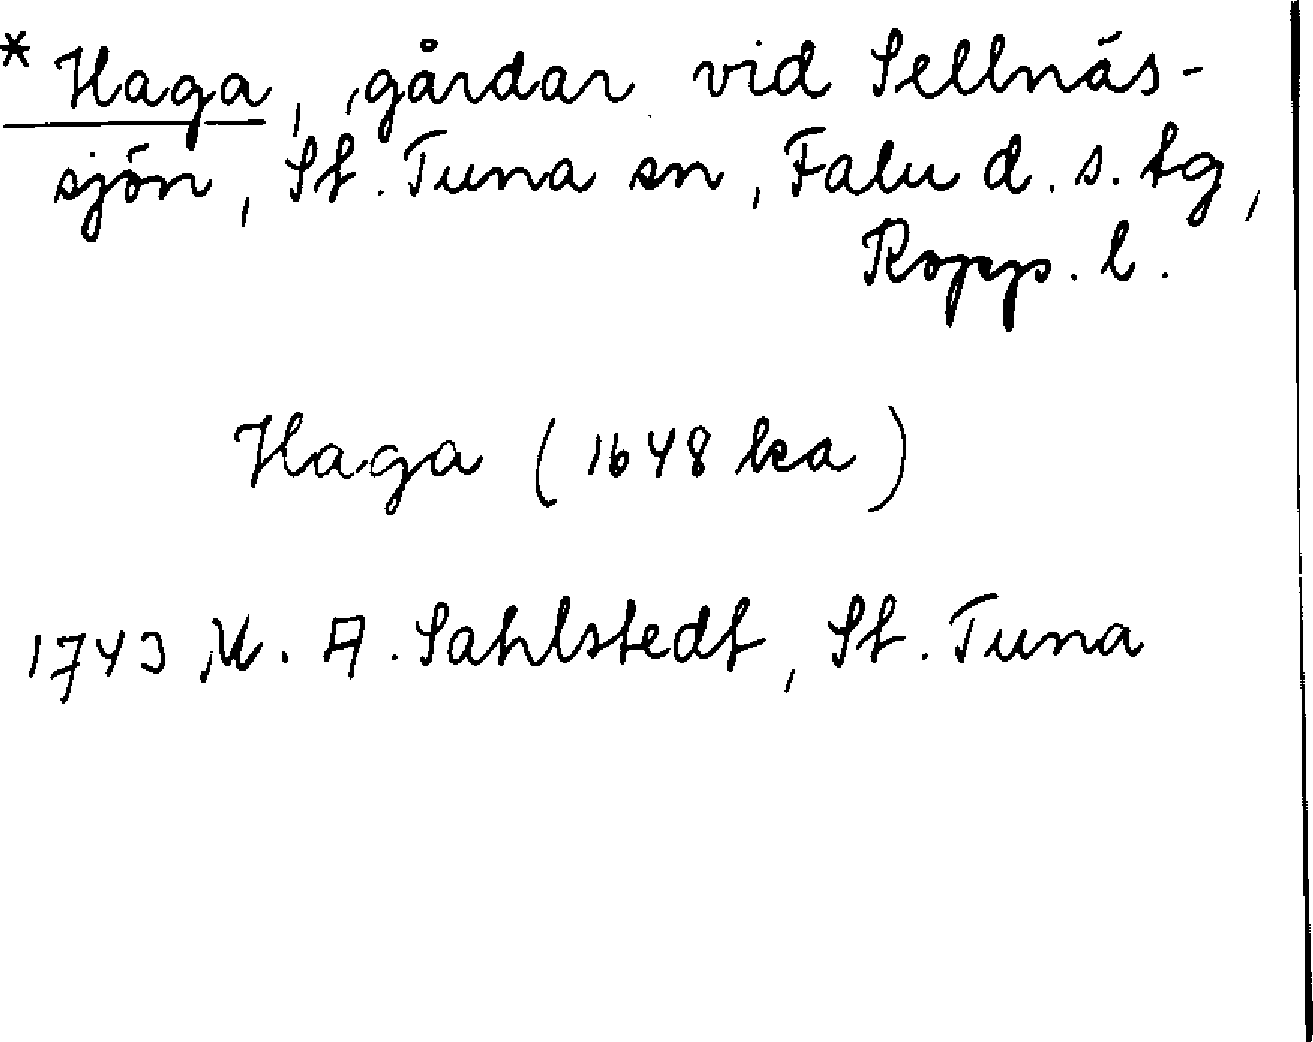 * Haga, gårdar vid Sellnäs-
sjön, St. Tuna sn, Falu d. s. tg,
Kopp. l.
Haga (1648 ka)
1743 M. A. Sahlstedt, St. Tuna